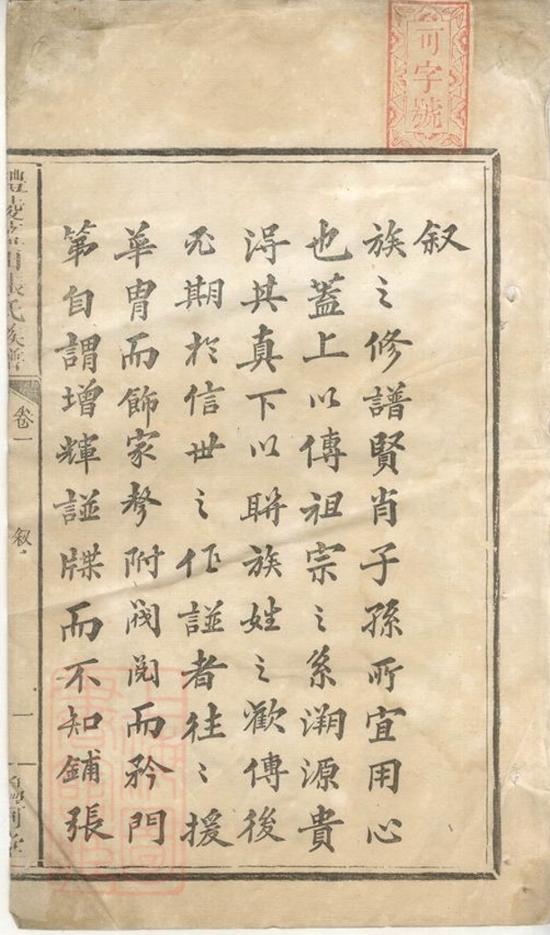 可字號
叙
族之修譜賢肖子孫所宜用心
也蓋上以傳祖宗之系溯源貴
淂其真下以聨族姓之歡傳後
旡期扵信世之作諩者往〻援
華胄而飾家聲附閥閱而矜門
第自謂增輝諩牒而不知鋪張
醴陵田張氏族譜
卷一
叙
一
堂